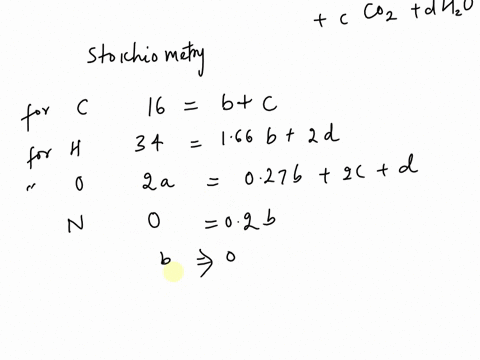 + c CO2 + d H2O
Stoichiometry
for C 16 = b + c
for H 34 = 1.66 b + 2d
" O 2a = 0.27b + 2c + d
N 0 = 0.2 b
b ⇒ 0